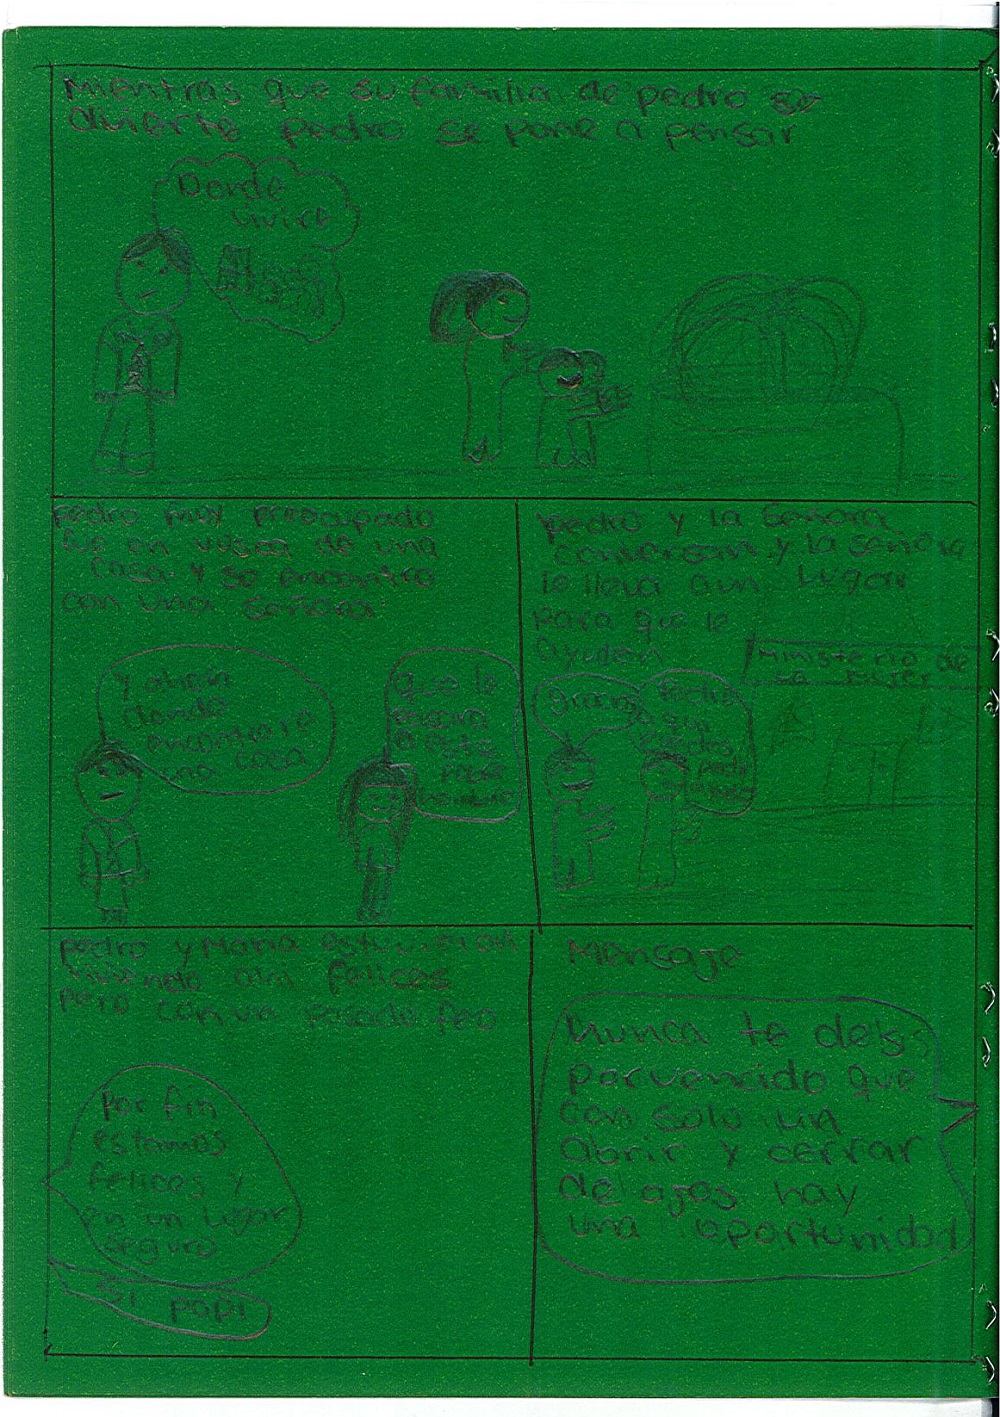 Mientras que su familia de pedro se
divierte pedro se pone a pensar
Donde
vivire
pedro muy preocupado
fue en vusca de una
casa y se encontro
con una señora
y ahora
donde
encontrare
una casa
que le
pasara
a este
pobre
hombre
pedro y la señora
conversan y la señora
le lleva aun Lugar
para que le
ayuden
Ministerio de
La Mujer
gracias
Pedro
aqui
puedes
pedir
pedro y Maria estuvieron
viviendo ahi felices
pero con un pasado feo
Por fin
estamos
felices y
en un Lugar
seguro
Si papi
Mensaje
Nunca te des
por vencido que
con solo un
abrir y cerrar
de ojos hay
una oportunidad